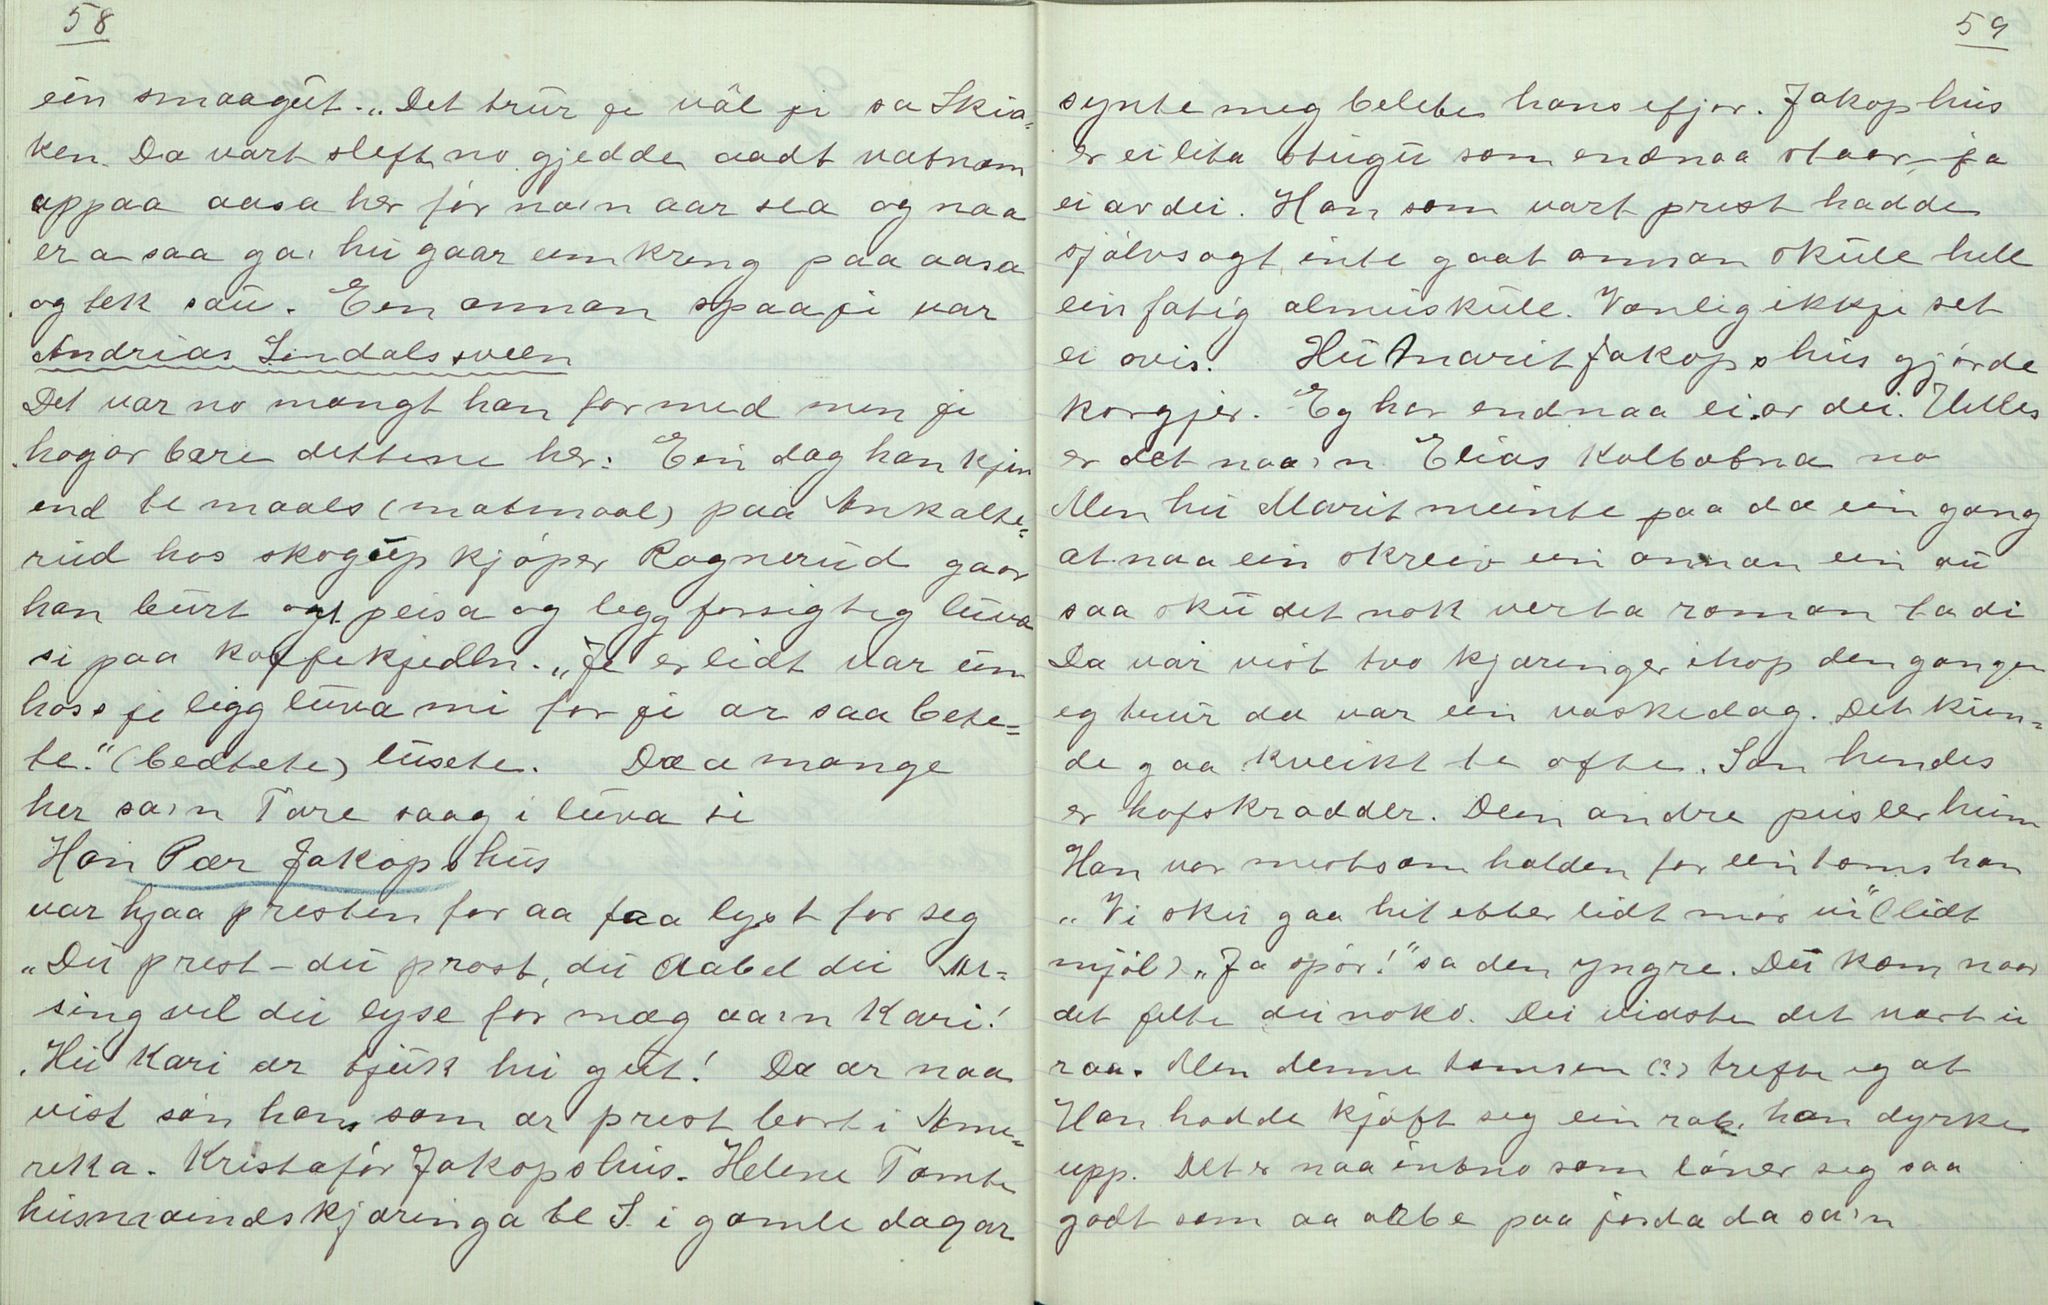 58
ein smaagut. „Det trur je väl ji sa Skia-
ken. Da vart sleft no gjedde aadt vatnom
uppaa aasa her för na'n aar sea og naa
er a saa ga' hu gaar umkring paa aasa
og tek sau. Ein annan spaaji var
Andrias Lindalssveen
Det var no mangt han for med men ji
hogar bære dettene her: Ein dag han kjem
end te maals (matmaal) paa Ankalte-
rud hos skogupkjöper Ragnerud gaar
han burt og peisa og legg forsigtig luva
si paa kaffekjedln. „Je er lidt var um
hoss je ligg luva mi for ji ar saa bete-
te." (bedtete) lusete. Da a mange
her sa'n Tore saag i luva si
Han Pær Jakopshus
var hjaa presten for aa faa lyst for seg
„Du prest – du prost, du Aabel du Mi-
sing vil du lyse for mæg aa'n Kari!
Hu Kari ar tjukk hu gut! Da ar naa
vist sön hans som ar prest bort i Ame-
rika. Kristaför Jakopshus. Helene Tomte
husmaindskjæringa te S. i gamle dagar
59
synte meg belete hans ifjor. Jakophus
er ei lita stugu som endnaa staar – ja
ei av dei. Han som vart prest hadde
sjölvsagt inte gaat annan skule hell
ein fatig almuskule. Vanlig ikkje set
ei avis. Hu Marit Jakopshus gjorde
korgjer. Eg har endnaa ei av dei. Utles
er det naa'n Elias Kalbotna no
Men hu Marit meinte paa da ein gang
at naa ein skreiv ein annan ein au
saa sku det nok verta roman ta di
Da var vist tvo kjæringer ihop den gangen
eg trur da var ein vaskedag. Det kun-
de gaa kveikt te ofte. Son hendes
er hofskradder. Den andre pusler him
Han var mest som halden for ein toms han
„Vi sku gaa hit etter lidt mör vi" (lidt
mjöl) „Ja spör!" sa den yngre. Du kom naar
det felte du noko. Dei vidste det vart ei
raa. Men denne tomsen (?) trefte eg at
Han hadde kjöft seg ein rab. han dyrke
upp. Det er naa intno som löner seg saa
godt som aa arbe paa jorda da sa'n